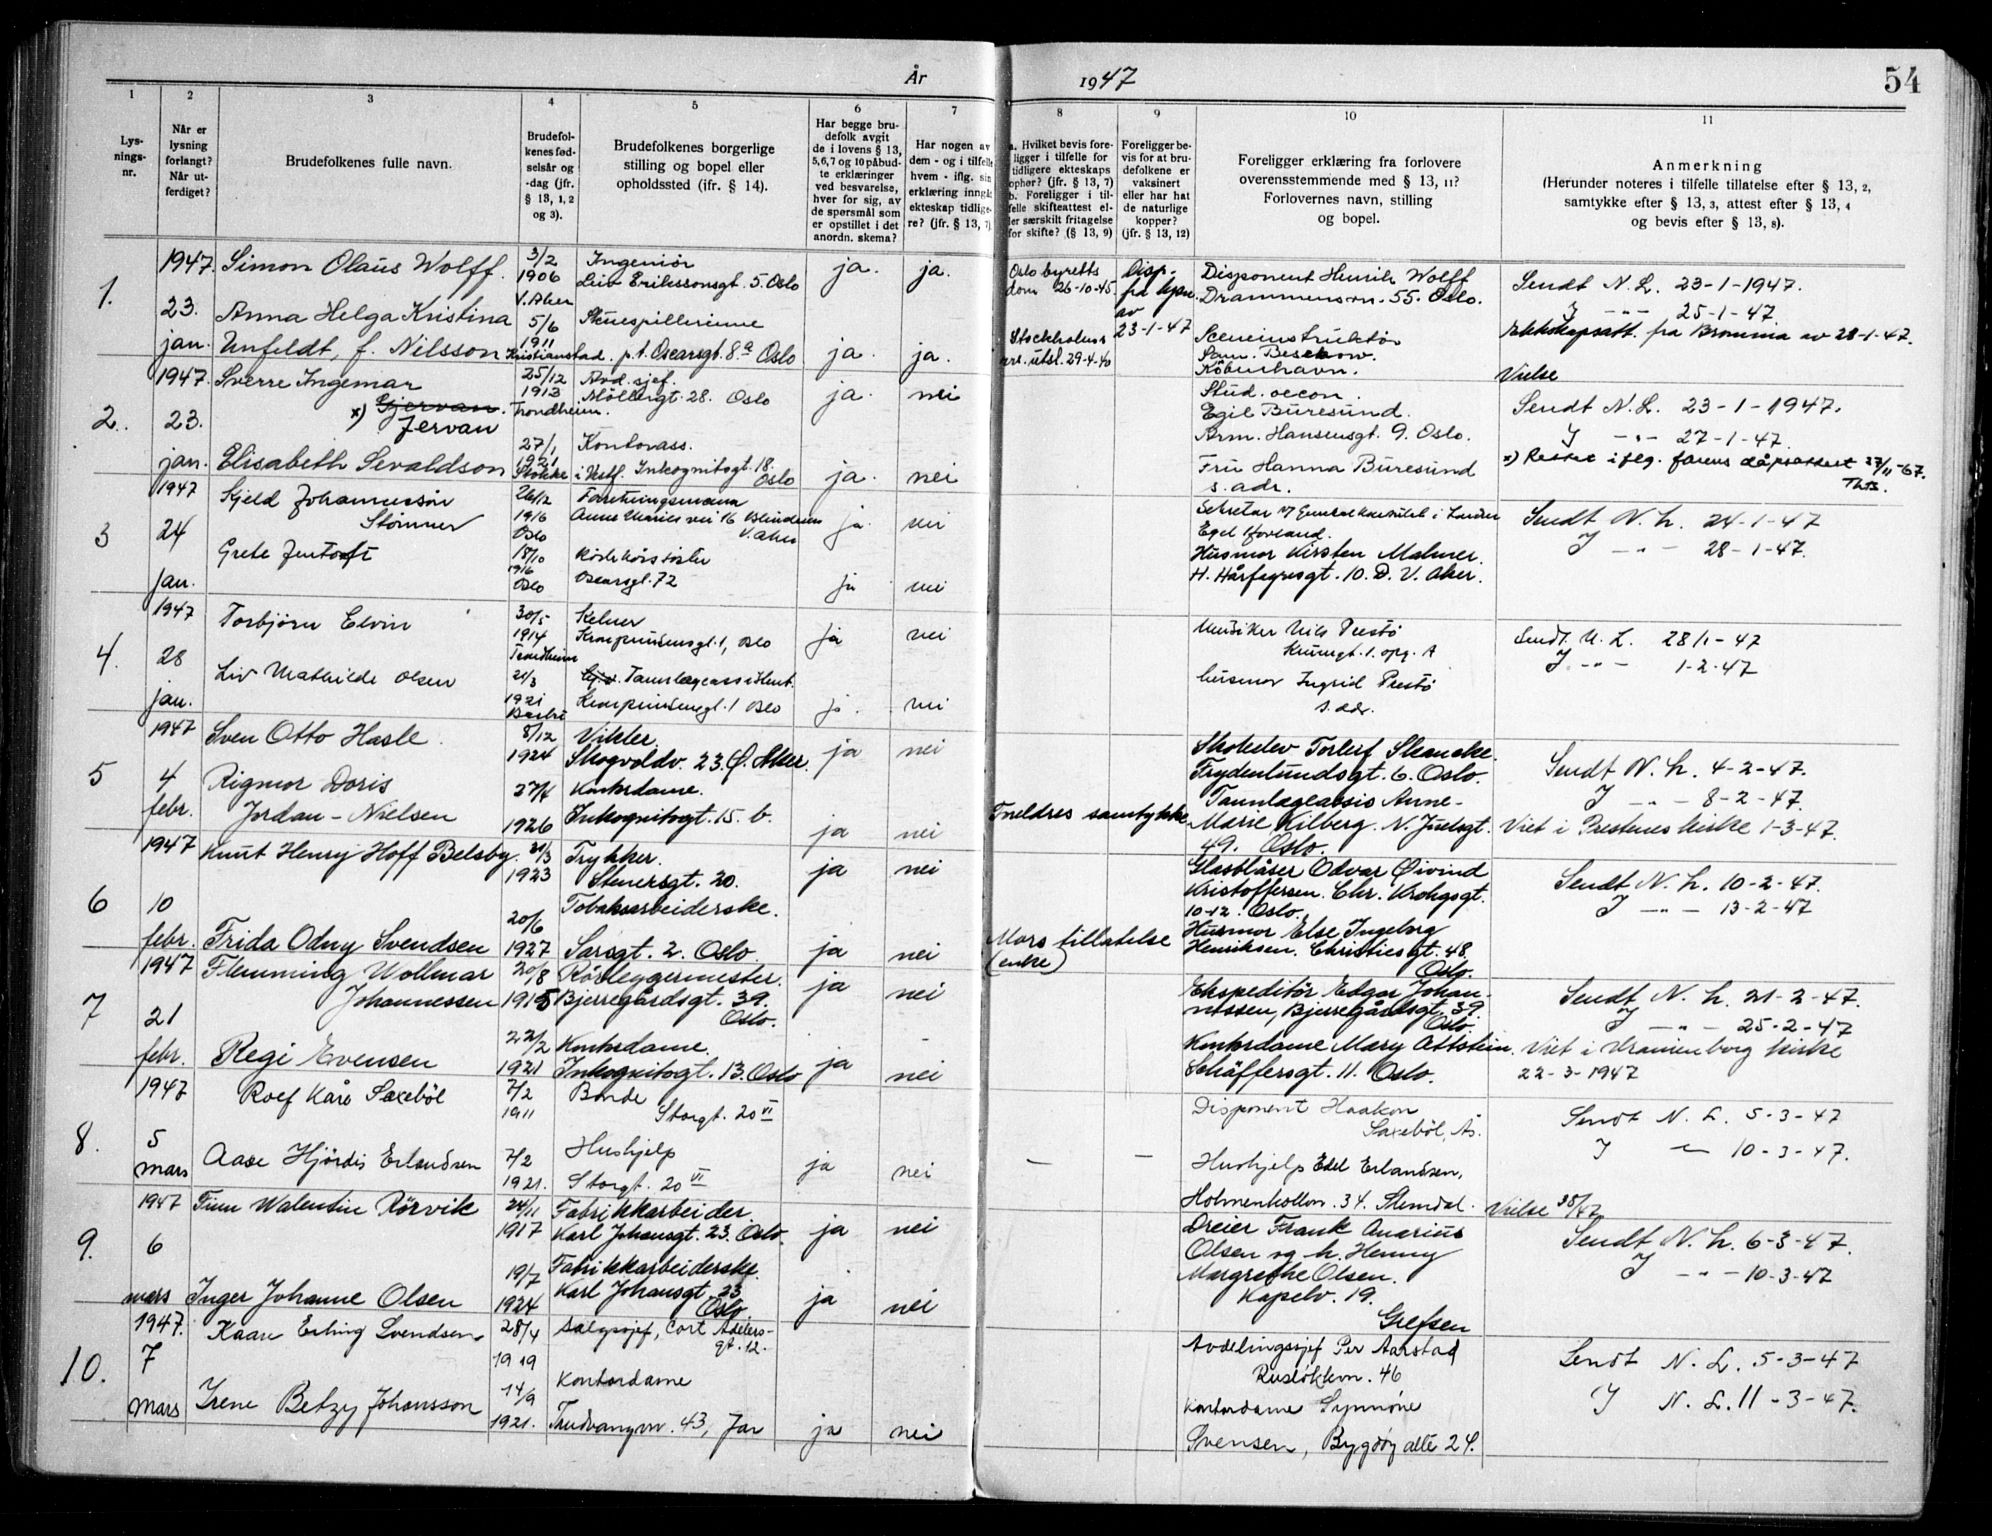 År 1947
54
1
2
3
4
5
6
7
8
9
10
11
Lys-
nings-
nr.
Når er
lysning
forlangt?
Når ut-
ferdiget?
Brudefolkenes fulle navn.
Brudefol-
kenes fød-
selsår og
-dag (jfr.
§ 13, 1, 2
og 3).
Brudefolkenes borgerlige
stilling og bopel eller
opholdssted (ifr. § 14).
Har begge bru-
defolk avgit
de i lovens § 13,
5,6,7 og 10 påbud-
te erklæringer
ved besvarelse,
hver for sig, av
de spørsmål som
er opstillet i det
anordn. skema?
Har nogen av
dem - og i tilfelle
hvem - iflg. sin
erklæring inngåt
ekteskap tidlige-
re? (jfr. § 13, 7)
a. Hvilket bevis fore-
ligger i tilfelle for
tidligere ekteskaps
ophør? (jfr. § 13, 7)
b. Foreligger i til-
felle skifteattest el-
ler særskilt fritagelse
for skifte? (§ 13, 9)
Foreligger be-
vis for at bru-
defolkene er
vaksinert
eller har hat
de naturlige
kopper?
(jfr. § 13, 12)
Foreligger erklæring fra forlovere
overensstemmende med § 13, 11?
Forlovernes navn, stilling
og bopel.
Anmerkning
(Herunder noteres i tilfelle tillatelse efter § 13, 2,
samtykke efter § 13, 3, attest efter § 13, 4
og bevis efter § 13, 8).
1.
1947.
23.
jan.
Simon Olaus Wolff.
3/2
1906
V. Aker
Ingeniør
Leiv Erikssonsgt. 5. Oslo
ja.
ja.
Oslo byretts
dom 26-10-45.
Disp.
fra kpn.
av
23-1-47
Disponent Henrik Wolff
Drammensvn. 55. Oslo.
Sendt N.L. 23-1-1947.
J -"- 25-1-47
Anna Helga Kristina
Unfeldt, f. Nilsson
5/6
1911
Kristianstad.
Skuespillerinne
p.t. Oscarsgt. 8a Oslo
ja.
ja.
Stockholms
utsl. 29-4-40
Sceneinstruktør
Sam. Besekow.
København.
Ekteskapsatt. fra Bromma av 28-1-47.
Vielse
2.
1947.
23.
jan.
Sverre Ingemar
x) Gjervan.
Jervan
25/12
1913
Trondheim.
Avd. sjef.
Møllergt. 28. Oslo
ja.
nei
Stud. oecon.
Egil Buresund.
Arm. Hansensgt. 9. Oslo.
Sendt N.L. 23-1-1947.
J -"- 27-1-47.
Elisabeth Sevaldson
27/1
1921
Stokke
Kontorass.
i Vestf. Inkognitogt. 18.
Oslo
ja.
nei
Fru Hanna Buresund
s. adr.
x) Rettet iflg. farens dåpsattest 27/11-67.
3
1947
24
jan.
Kjeld Johannessön
Störmer
26/12
1916
Oslo
Forretningsmann
Anne Maries vei 16 Blindern
V. Aker
ja.
nei
Sekretær v/ Generalkonsulatet i London
Egil
Sendt N. L. 24-1-47
J -"- 28-1-47.
Grete Jentoft
18/10
1916
Oslo
Röde korssöster
Oscarsgt. 72
ja
nei
Husmor Kirsten Malmer.
H. Hårfagresgt. 10. D. V. Aker.
4.
1947
28
jan.
Torbjörn Elvin
30/5
1914
Trondheim
Kelner
gt. 1, Oslo
ja
nei
Musiker Nils Prestö
gt. 1. opg. A
Sendt N. L. 28/1-47
J. -"- 1-2-47
Liv Mathilde Olsen
21/3
1921
Tannlægeass
gt. 1 Oslo
ja.
nei
husmor Ingrid Prestö
s. adr.
5
1947
4
febr.
Sven Otto Hasle.
8/12
1924
Vikler.
Skogvoldv. 23. Ø. Aker.
ja
nei
Skoelev Torleif Skancke.
Frydenlundsgt. 6. Oslo.
Sendt N. L. 4-2-47.
J -"- 8-2-47.
Rigmor Doris
Jordan-Nielsen
27/4
1926
Kontordame.
Inkognitogt. 15. b.
ja
nei
Foreldres samtykke
Tannlægeassis Anne-
Marie Kilberg. N. Juelsgt.
49. Oslo.
Viet i Prestenes kirke 1-3-47.
6
1947
10
febr.
Knut Henry Hoff Belsby.
31/3
1923
Trykker.
Stenersgt. 20.
ja
nei
Glassblåser Odvar Øivind
Kristoffersen. Chr. Krohgsgt.
10-12. Oslo.
Sendt N. L. 10-2-47.
J -"- 13-2-47
Frida Odny Svendsen
20/6
1927
Tobaksarbeiderske.
Sarsgt. 2. Oslo.
ja
nei
Mors tillatelse
(enke)
Husmor Else Ingeborg
Henriksen. Christiesgt. 48.
Oslo.
7
1947
21
febr.
Flemming Wollmar
Johannessen
20/8
1915
Rörleggermester.
Bjerregårdsgt. 39.
Oslo.
ja
nei
Ekspeditör Edgar Johan-
nessen, Bjerregårdsgt. 39.
Oslo.
Sendt N. L. 21-2-47.
J -"- 25-2-47
Regi Evensen
22/2
1921
Kontordame.
Inkognitogt. 13. Oslo
ja
nei
Kontordame Mary Ottstein.
Schäffersgt. 11. Oslo.
Viet i Uranienborg kirke
22-3-1947
8.
1947
5
mars
Rolf Kåre Saxebøl
7/2
1911
Bonde
Storgt. 20 VI
Disponent Haakon
Saxebøl, Ås.
Sendt N. L. 5-3-47
J -"- 10-3-47.
Aase Hjördis Erlandsen
7/2
1921.
Hushjelp
Storgt. 20 VI
ja
nei
-
-
Hushjelp Edel Erlandsen,
Holmenkollvn. 34. Slemdal.
Vielse
9.
1947
6
mars
Finn Walentin Rörvik
24/11
1917
Fabrikkarbeider
Karl Johansgt. 23. Oslo.
ja
nei
Dreier Frank Anarius
Olsen og h. Henny
Margrethe Olsen.
Kapelv. 19.
Grefsen
Sendt N. L. 6-3-47.
J -"- 10-3-47
Inger Johanne Olsen
19/7
1924
Fabrikkarbeiderske.
Karl Johansgt. 23
Oslo
ja
nei
10.
1947.
7
mars
Kaare Erling Svendsen
28/4
1919
Salgssjef, Cort Adelers-
gt. 12.
Avdelingssjef Per Aarstad
Ruseløkkvn. 46
Sendt N. L. 5-3-47
J N. L. 11-3-47.
Irene Betzy Johansson
14/9
1921.
Kontordame
Trudvangvn. 43, Jar
ja
nei
Kontordame Synnöve
Svensen, Bygdøy alle 24.